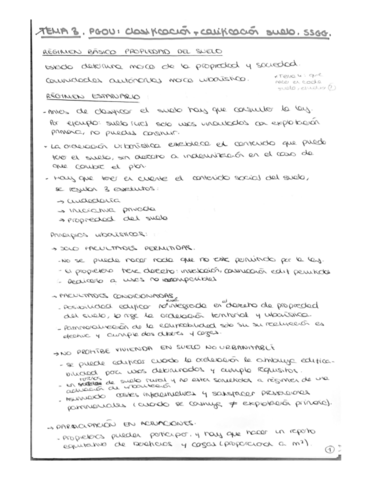 TEMA 8. PGOU: Clasificación y calificación suelo. SSGG.
RÉGIMEN BÁSICO PROPIEDAD DEL SUELO
Estado determina marco de la propiedad y sociedad
Comunidades autónomas marco urbanístico.
RÉGIMEN ESTATUTARIO
- Antes de clasificar el suelo hay que consultar la ley.
Por ejemplo: suelo rural solo usos vinculados con explotación
primaria, no puedes construir.
- La ordenación urbanística establece el contenido que puede
tener el suelo, sin derecho a indemnización en el caso de
que cambie el plan.
- Hay que tener en cuenta el contenido social del suelo,
se regulan 3 estatutos.
→ Ciudadanía
→ Iniciativa privada
→ Propiedad del suelo
Principios urbanísticos:
→ SOLO FACULTADES PERMITIDAS.
- No se puede hacer nada que no esté permitido por la ley.
- la propietario tiene derecho: instalación, construcción edif permitida
- Derecho a usos no
→ FACULTADES CONDICIONADAS
- Facultad edificar no integrada en derecho de propiedad
del suelo, lo rige la ordenación territorial y urbanística.
- Patrimonialización de la edificabilidad solo su realización es
efectiva y cumple los deberes y cargas.
→ NO PROHIBE VIVIENDA EN SUELO NO URBANIZABLE
- se puede edificar cuando la ordenación le atribuya edifica-
bilidad por usos determinados y cumpla requisitos.
- En suelo rural y no estén sometidos a régimen de una
actuación de urbanización
- costes infraestructuras y satisfacer prestaciones
patrimoniales (cuando se ≠ explotación primaria).
→ PARTICIPACIÓN EN ACTUACIONES.
- Propietarios pueden participar y hay que hacer un reparto
equitativo de beneficios y cargas (proporcional a m²).
1